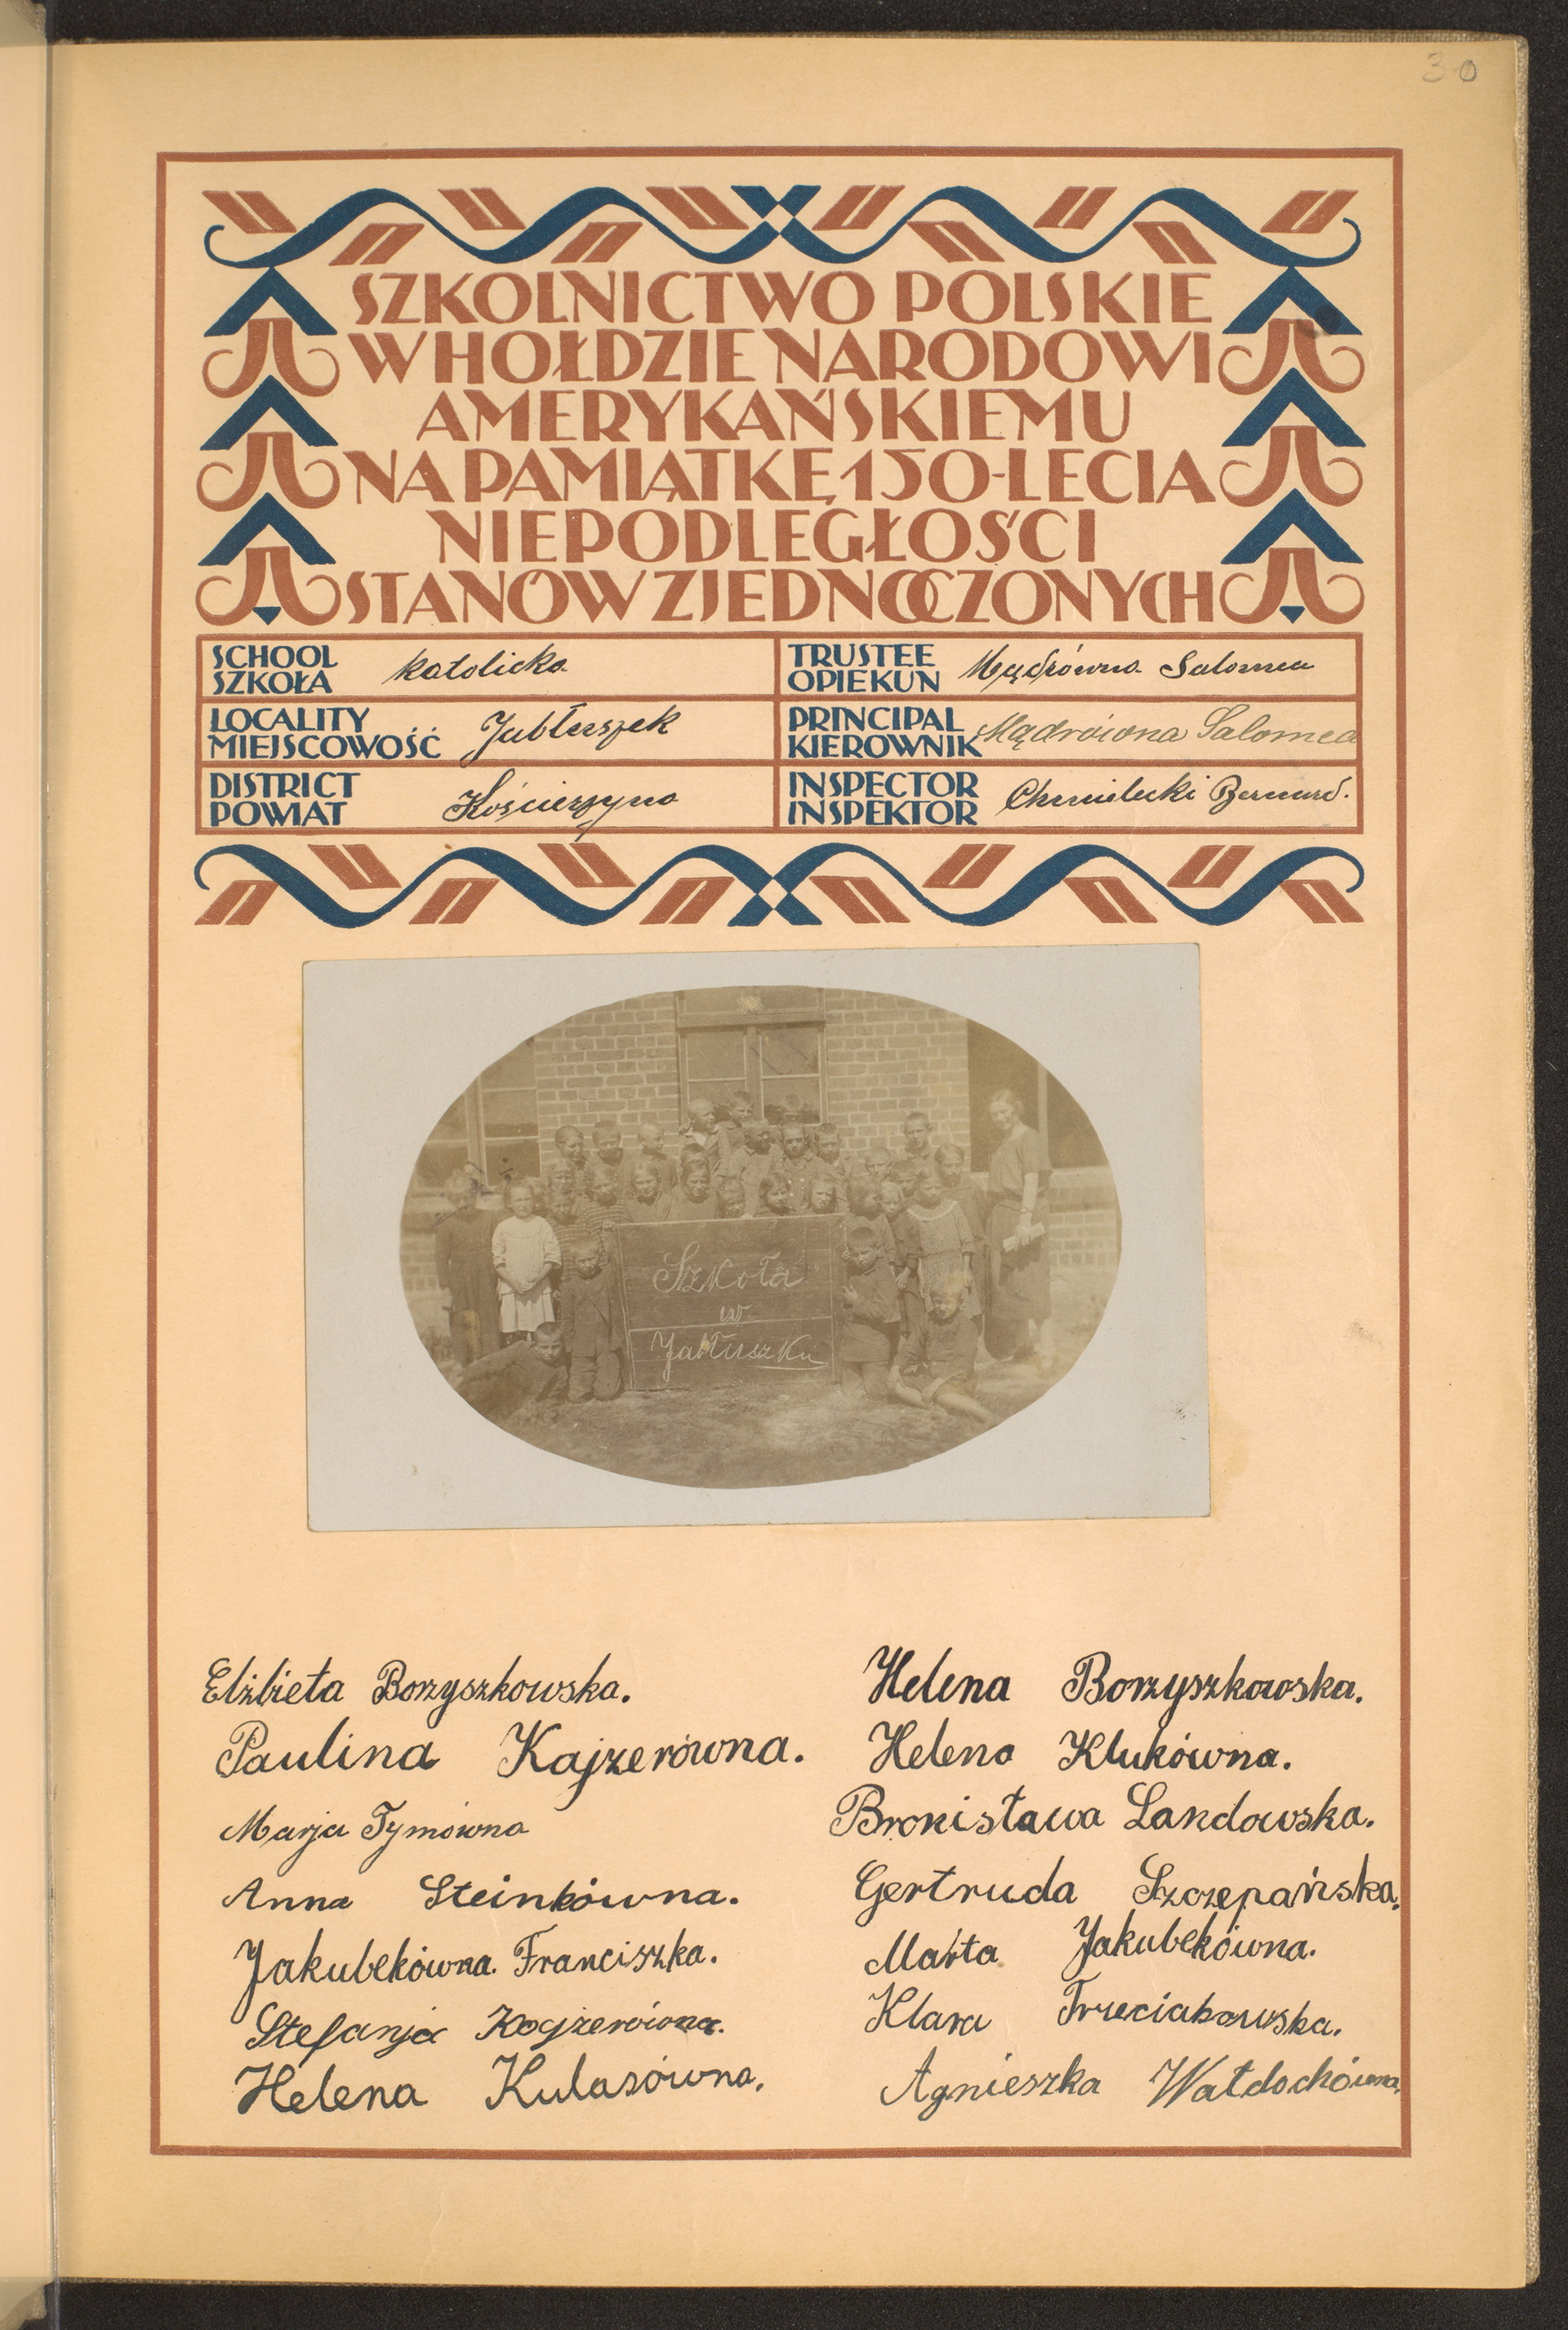 30
SZKOLNICTWO POLSKIE
W HOŁDZIE NARODOWI
AMERYKAŃSKIEMU
NA PAMIĄTKĘ 150-LECIA
NIEPODLEGŁOŚCI
STANÓW ZJEDNOCZONYCH
SCHOOL
SZKOŁA katolicka
TRUSTEE
OPIEKUN Mądrówna Salomea
LOCALITY
MIEJSCOWOŚĆ Jabłuszek
PRINCIPAL
KIEROWNIK Mądrówna Salomea
DISTRICT
POWIAT Kościerzyna
INSPECTOR
INSPEKTOR Chmielecki Bernard.
Szkoła
w
Jabłuszku
Elżbieta Borzyszkowska.
Helena Borzyszkowska.
Paulina Kajzerówna.
Helena Klukówna.
Marja Tymówna
Bronisława Landowska.
Anna Steinkówna.
Gertruda Szczepańska.
Jakubekówna. Franciszka.
Marta Jakubekówna.
Stefanja Kajzerówna.
Klara Trzeciakowska.
Helena Kulasówna.
Agnieszka Wałdochówna.